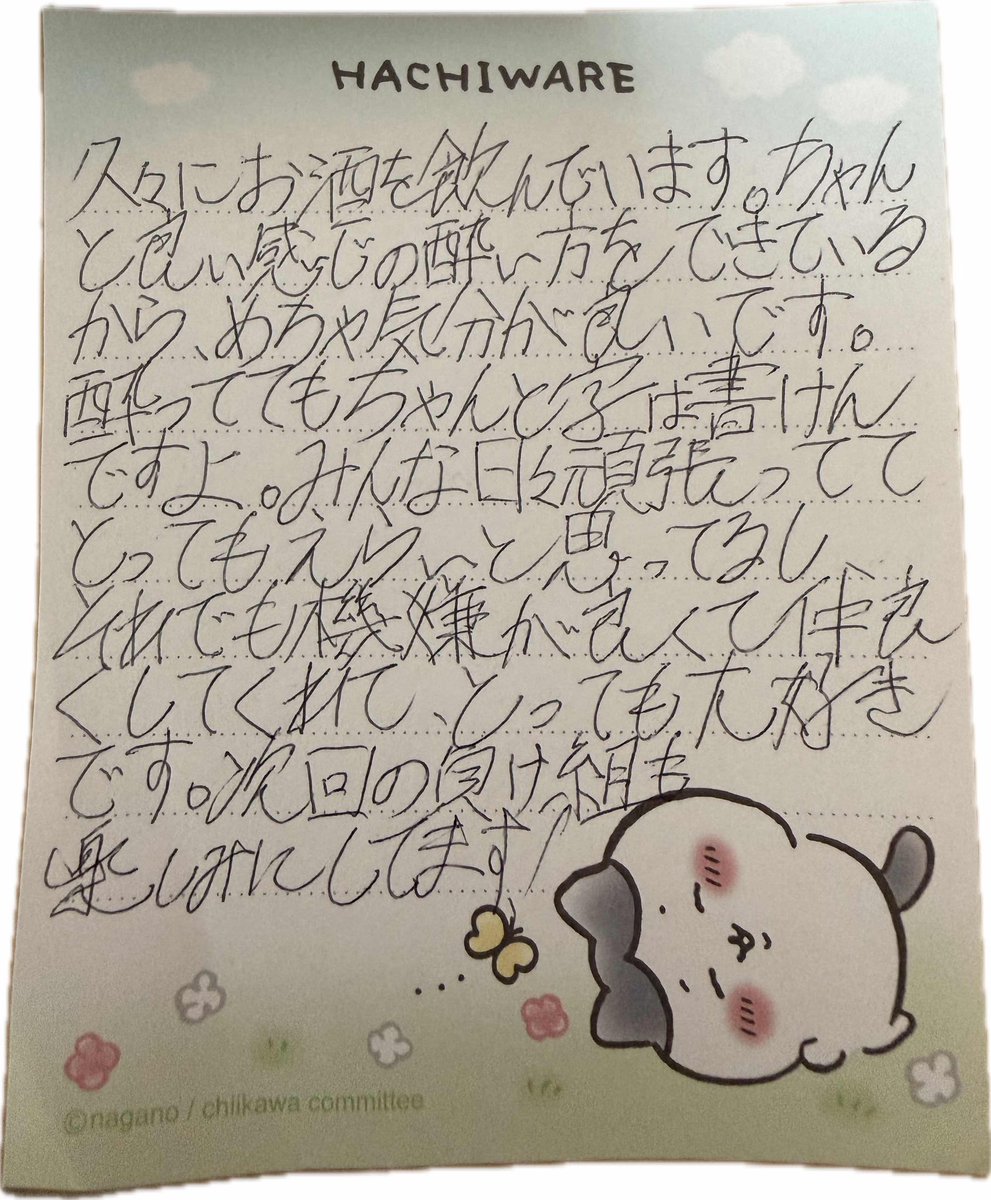 HACHIWARE
久々にお酒を飲んでいます。ちゃん
と良い感じの酔い方をできている
から、めちゃ気分が良いです。
酔っててもちゃんと字は書けん
ですよ。みんな日々頑張ってて
とってもえらいと思ってるし
それでも機嫌が良くて仲良
くしてくれて、とっても大好き
です。次回の負け組も
楽しみにしてます!
©nagano / chiikawa committee